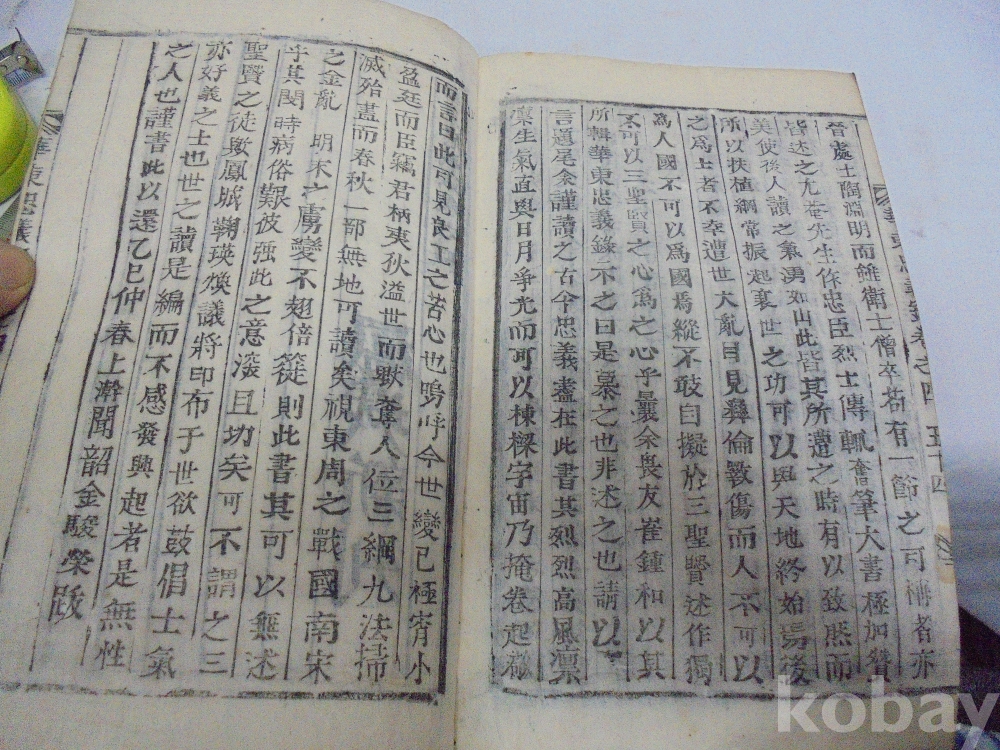 晉處士陶淵明而雖衛士僧卒若有一節之可稱者亦
皆述之尤菴先生作忠臣烈士傳輒奮筆大書極加贊
美使後人讀之氣湧如山此皆其所遭之時有以致然而
所以扶植綱常振起衰世之功可以與天地終始焉後
之爲上者不幸遭世大亂目見彝倫斁傷而人不可以
爲人國不可以爲國焉縱不敢自擬於三聖賢述作獨
不可以三聖賢之心爲之心乎曩余畏友崔鍾和以其
所輯華東忠義錄示之曰是慕之也非述之也請以
言題尾余謹讀之古今忠義盡在此書其烈烈高風凜
凜生氣直與日月爭光而可以棟樑宇宙乃掩卷起
而言曰此可見良工之苦心也嗚呼今世變已極宵小
盈廷而臣竊君柄夷狄溢世而獸奪人位三綱九法掃
滅殆盡而春秋一部無地可讀矣視東周之戰國南宋
之金亂 明末之虜變不翅倍簁則此書其可以無述
乎其閔時病俗艱彼强此之意深且切矣可不謂之三
聖賢之徒歟鳳賑鞠瑛煥議將印布于世欲鼓倡士氣
亦好義之士也世之讀是編而不感發興起者是無性
之人也謹書此以還乙巳仲春上澣聞韶金駿榮跋
華東忠義
華東忠義錄卷之四 五十四
kobay